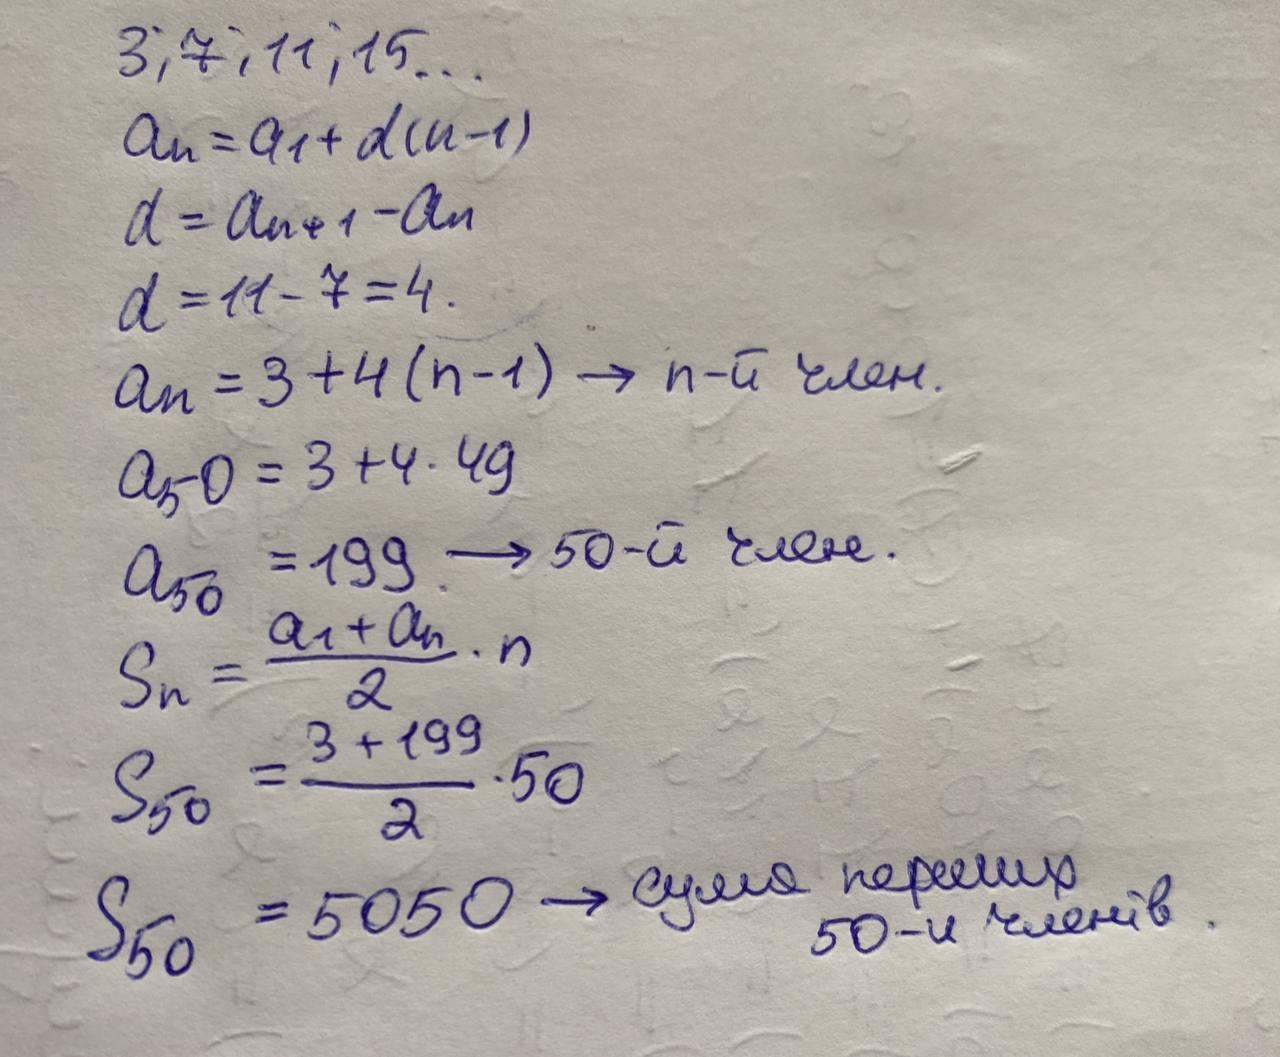 3; 7; 11; 15...
an = a1 + d(n-1)
d = an+1 - an
d = 11 - 7 = 4.
an = 3 + 4(n-1) → n-й член.
a50 = 3 + 4 · 49
a50 = 199. → 50-й член.
Sn = (a1 + an)/2 · n
S50 = (3 + 199)/2 · 50
S50 = 5050 → сума перших
50-и членів.